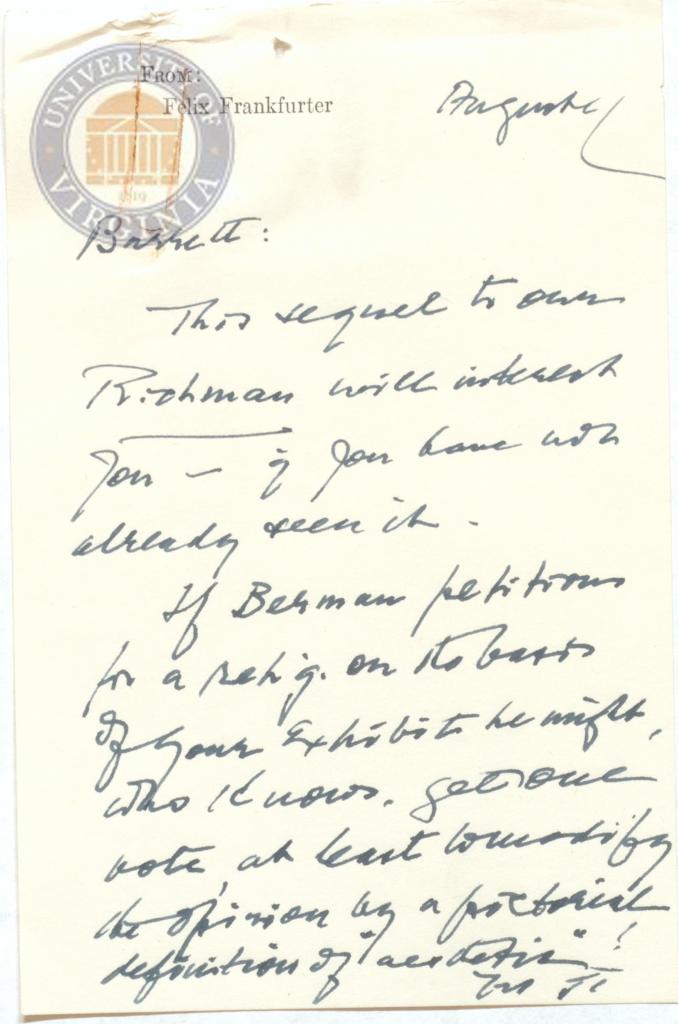 UNIVERSITY OF VIRGINIA
1819
FROM:
Felix Frankfurter
August
Barrett:
This sequel to our
Richman will interest
you — if you have not
already seen it.
If Berman petitions
for a reh'g. on the basis
of your Exhibits he might,
who knows, get one
vote, at least to modify
the opinion by a pictorial
definition of "aesthetic"!
FF